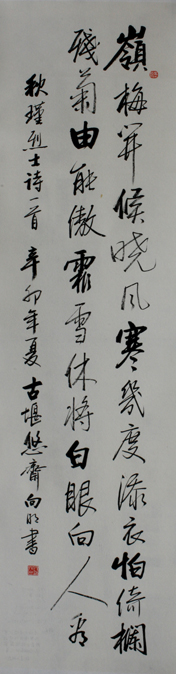 嶺梅開候曉风寒幾度添衣怕倚欄
残菊由能傲霜雪休将白眼向人看
秋瑾烈士诗一首 辛卯年夏 古堰悠齋向明書